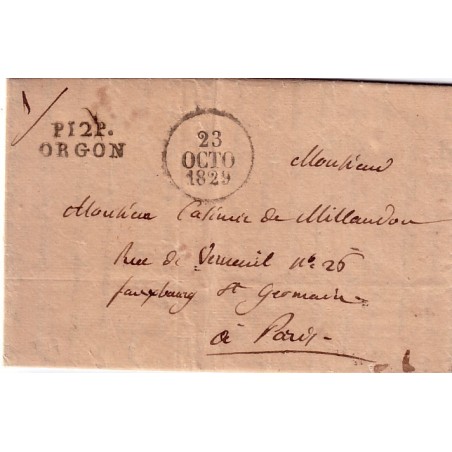 P12P.
ORGON
23
OCTO
1829
Monsieur
Monsieur Casimir de Millaudon
Rue de Verneuil N° 26
fauxbourg St Germain
à Paris